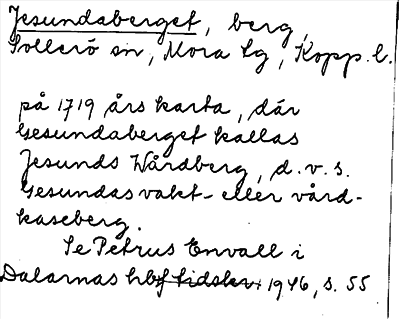 Jesundaberget, berg,
Sollerö sn, Mora tg, Kopp. l.
på 1719 års karta, där
Gesundaberget kallas
Jesunds Wårdberg, d.v.s.
Gesundas vakt- eller vård-
kaseberg.
Se Petrus Envall i
Dalarnas hbf tidskr. 1946, s. 55